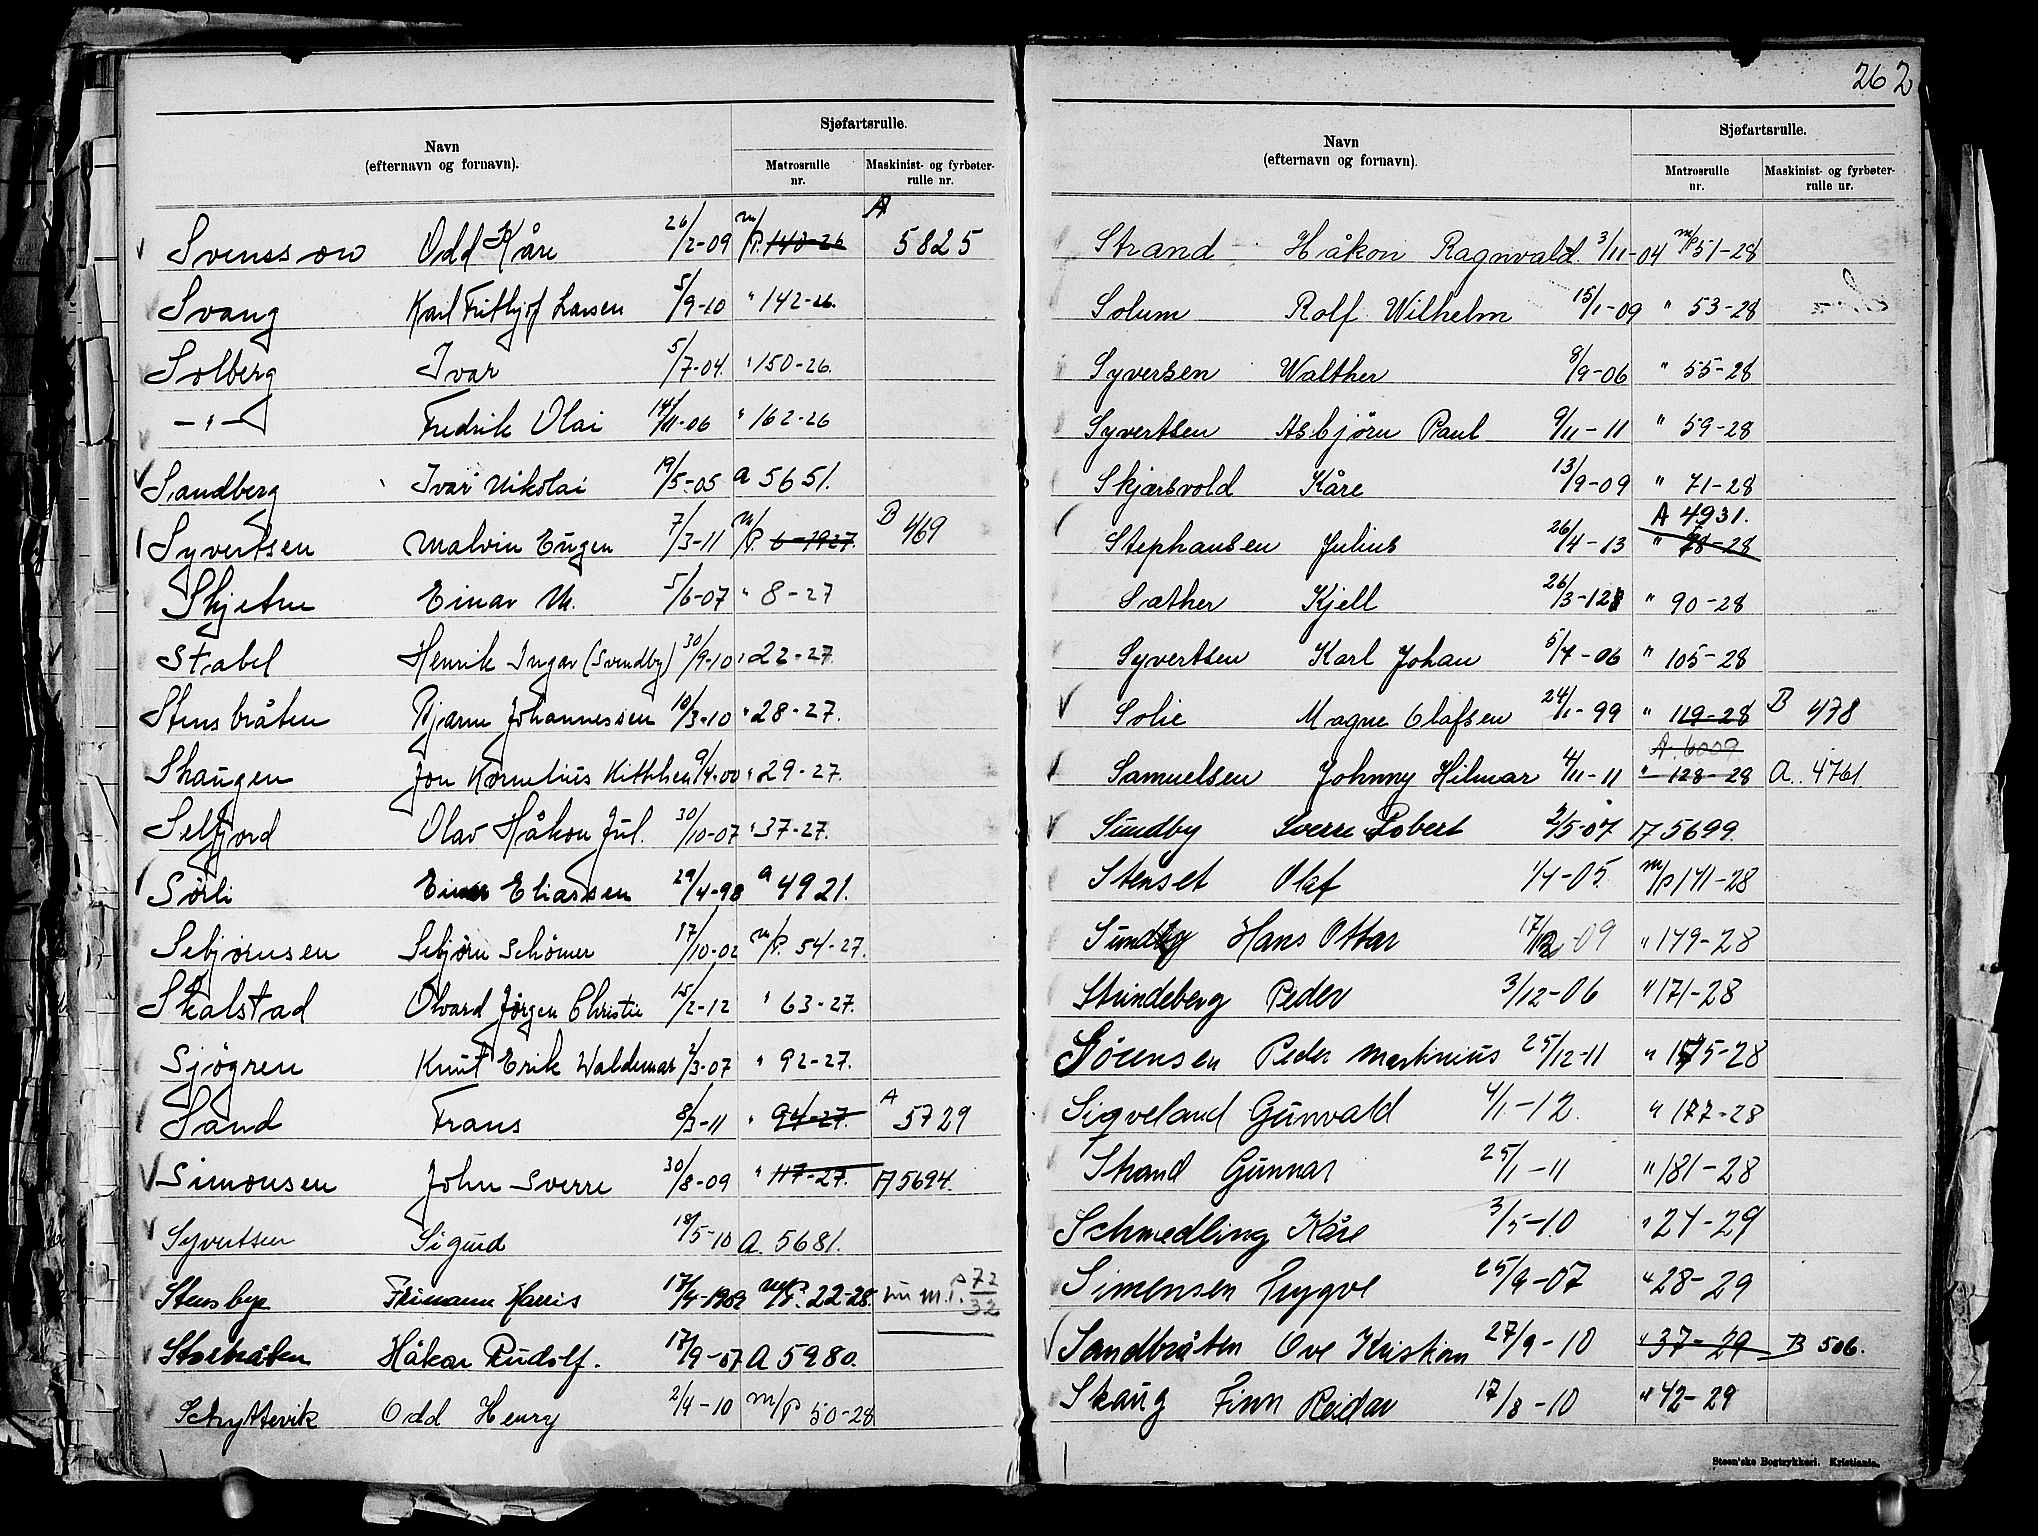 262
Sjøfartsrulle.
Navn
(efternavn og fornavn).
Matrosrulle
nr.
Maskinist- og fyrbøter-
rulle nr.
Svensson Odd Kåre 26/2-09 m/P. 143-26 A 5825
Svang Karl Frithjof Larsen 5/9-10 " 142-26.
Solberg Ivar 5/7-04. " 150-26.
-"- Fredrik Olai 14/11-06 " 162-26
Sandberg Ivar Nikolai 19/5-05 a 5651.
Syvertsen Malvin Eugen 7/3-11 m/P. 6-1927. B 469
Skjetne Einar M. 5/6-07 " 8-27
Stabel Henrik Ingar (Svendby) 30/9-10 " 22-27.
Stensbråten Bjarne Johannessen 10/3-10 " 28-27.
Skaugen Jon Kornelius Kittilsen 9/4-00 " 29-27.
Selfjord Olav Håkon Jul. 30/10-07 " 37-27.
Sørli Einar Eliassen 29/4-98 a 4921.
Sebjørnsen Sebjørn Schömer 17/10-02 m/P. 54-27.
Skalstad Olvard Jørgen Christie 15/2-12 " 63-27.
Sjögren Knut Erik Waldemar 2/3-07 " 92-27.
Sand Frans 8/3-11 " 94-27. A 5729
Simonsen John Sverre 30/8-09 " 117-27. A 5694.
Syvertsen Sigurd 18/5-10 A. 5681.
Stensbye Frimann Harris 17/4-1909 m/P. 22-28. nu m.P. 72/32
Storbråten Håkar Rudolf. 17/9-07 A 5980.
Schyttevik Odd Henry 2/4-10 m/P 50-28
Sjøfartsrulle.
Navn
(efternavn og fornavn).
Matrosrulle
nr.
Maskinist- og fyrbøter-
rulle nr.
Strand Håkon Ragnvald 3/11-04 m/P 51-28
Solum Rolf Wilhelm 15/1-09 " 53-28
Syversen Walther 8/9-06 " 55-28
Syvertsen Asbjørn Paul 9/11-11 " 59-28
Skjærsvold Kåre 13/9-09 " 71-28
A 4931.
Stephansen Julius 26/4-13 " 78-28
Sæther Kjell 26/3-12 " 90-28
Syvertsen Karl Johan 5/7-06 " 105-28
Solie Magne Olafsen 24/11-99 " 119-28 B 478
A. 6009
Samuelsen Johnny Hilmar 4/11-11 " 128-28 A. 4761
Sundby Sverre Robert 2/5-07 A 5699.
Stenset Olaf 1/4-05. m/P 141-28
Sundby Hans Ottar 17/12-09 " 149-28
Strindeberg Peder 3/12-06 " 171-28
Sörensen Peder Martinius 25/12-11 " 175-28
Sigveland Gunvald 4/1-12. " 177-28
Strand Gunnar 25/1-11 " 181-28
Schmedling Kåre 3/5-10 " 24-29
Simensen Trygve 25/9-07 " 28-29
Sandbråten Ove Kristian 27/9-10 " 37-29 B 506.
Skaug Finn Reidar 17/8-10 " 42-29
Steen'ske Bogtrykkeri. Kristiania.